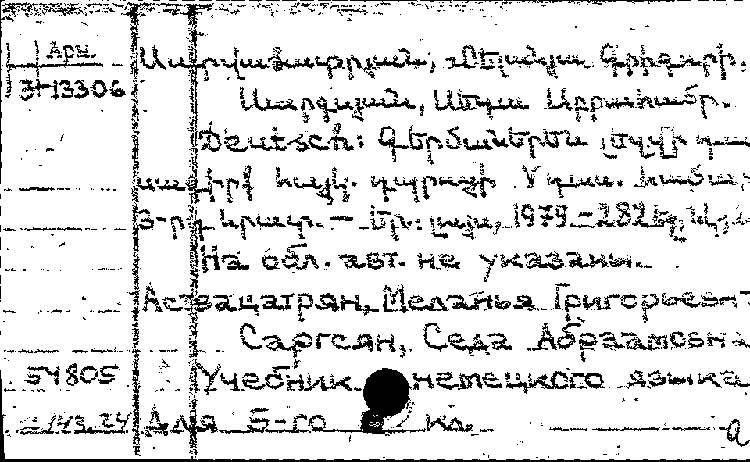 Арм.
Աստվածատրյան, Մելանյա Գրիգորի.
3-13306
Սարգսյան, Սեդա Աբրահամի.
Deutsch: Գերմաներեն լեզվի
հայկ. դպրոցի V դաս. համար
3-րդ հրատ. — Եր.: Լույս, 1979 - 282 էջ,
На обл. авт. не указаны.
Аствацатрян, Меланья Григорьевн
Саргсян, Седа Абраамовна
54805 Учебник немецкого языка
Для 5-го кл.
а